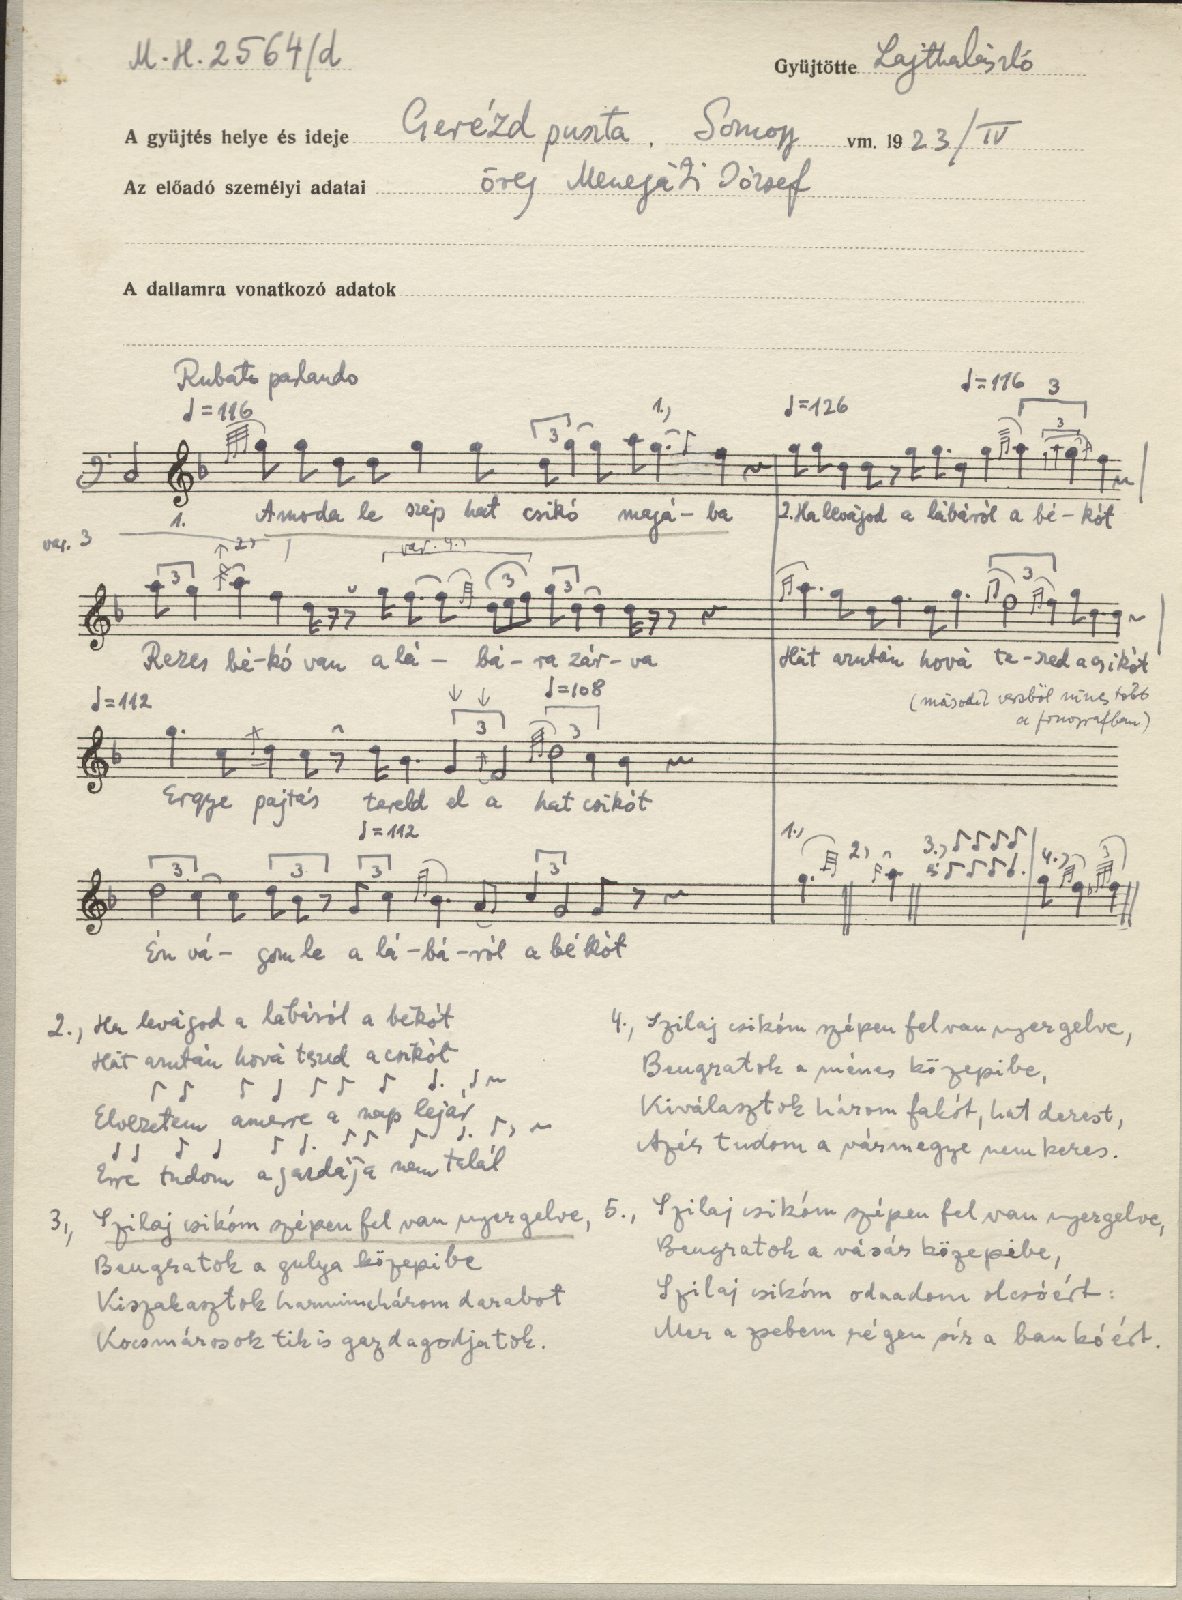 M.H. 2564/d
Gyűjtötte Lajtha László
A gyűjtés helye és ideje Gerézd puszta. Somogy vm. 1923/IV
Az előadó személyi adatai öreg Menegáti József
A dallamra vonatkozó adatok
Rubato parlando
♩=116 3 1.) ♩=126 ♩=116 3 3
1. Amoda le szép hat csikó magá-ba 2. Ha levágod a lábáról a bé-kót
var. 3 3 2) var. 4.) 3 3 3
Rezes bé-kó van a lá- bá-ra zár-va Hát azután hová te-szed a csikót
(második versből nincs több
a fonografban)
♩=112 3 ♩=108 3
Ergye pajtás tereld el a hat csikót
♩=112
3 3 3 3 1.) 2) 3.) 5 4.) 3
Én vá- gom le a lá-bá-ról a békót
2., Ha levágod a lábáról a békót
Hát azután hová teszed a csikót
Elvezetem amerre a nap lejár
Erre tudom a gazdája nem talál
3., Szilaj csikóm szépen fel van nyergelve,
Beugratok a gulya közepibe
Kiszakasztok harminchárom darabot
Kocsmárosok tik is gazdagodjatok.
4., Szilaj csikóm szépen fel van nyergelve,
Beugratok a ménes közepibe,
Kiválasztok három fakót, hat derest,
Azér tudom a vármegye nem keres.
5., Szilaj csikóm szépen fel van nyergelve,
Beugratok a vásár közepibe,
Szilaj csikóm odaadom olcsóért:
Mer a zsebem régen sír a bankóért.